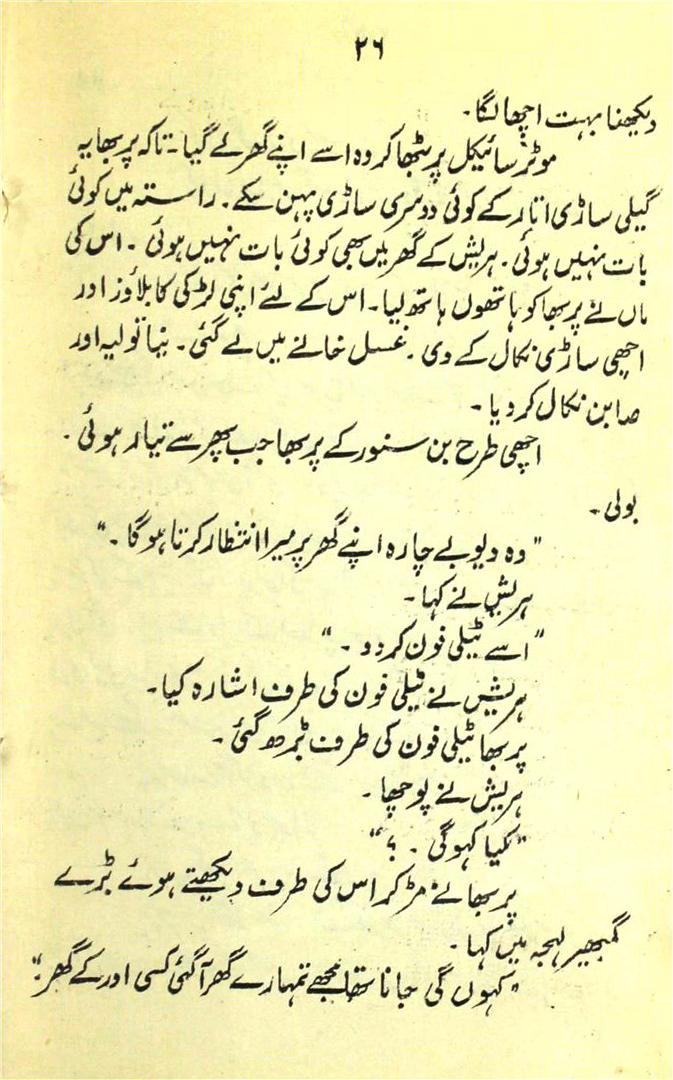 ۲۶
دیکھنا بہت اچھا لگا۔
موٹر سائیکل پر بٹھا کر وہ اسے اپنے گھر لے گیا۔ تاکہ پربھا یہ
گیلی ساڑی اتار کے کوئی دوسری ساڑی پہن سکے۔ راستہ میں کوئی
بات نہیں ہوئی۔ ہریش کے گھر میں بھی کوئی بات نہیں ہوئی۔ اس کی
ماں نے پربھا کو ہاتھوں ہاتھ لیا۔ اس کے لئے اپنی لڑکی کا بلاؤز اور
اچھی ساڑی نکال کے دی۔ غسل خانے میں لے گئی۔ نیا تولیہ اور
صابن نکال کر دیا۔
اچھی طرح بن سنور کے پربھا جب پھر سے تیار ہوئی۔
بولی۔
"وہ دیو بے چارہ اپنے گھر پر میرا انتظار کرتا ہوگا۔"
ہریش نے کہا۔
"اسے ٹیلی فون کر دو۔"
ہریش نے ٹیلی فون کی طرف اشارہ کیا۔
پربھا ٹیلی فون کی طرف بڑھ گئی۔
ہریش نے پوچھا۔
"کیا کہو گی۔ ؟"
پربھا نے مڑ کر اس کی طرف دیکھتے ہوئے بڑے
گمبھیر لہجہ میں کہا۔
"کہوں گی جانا تھا مجھے تمہارے گھر آگئی کسی اور کے گھر؟"